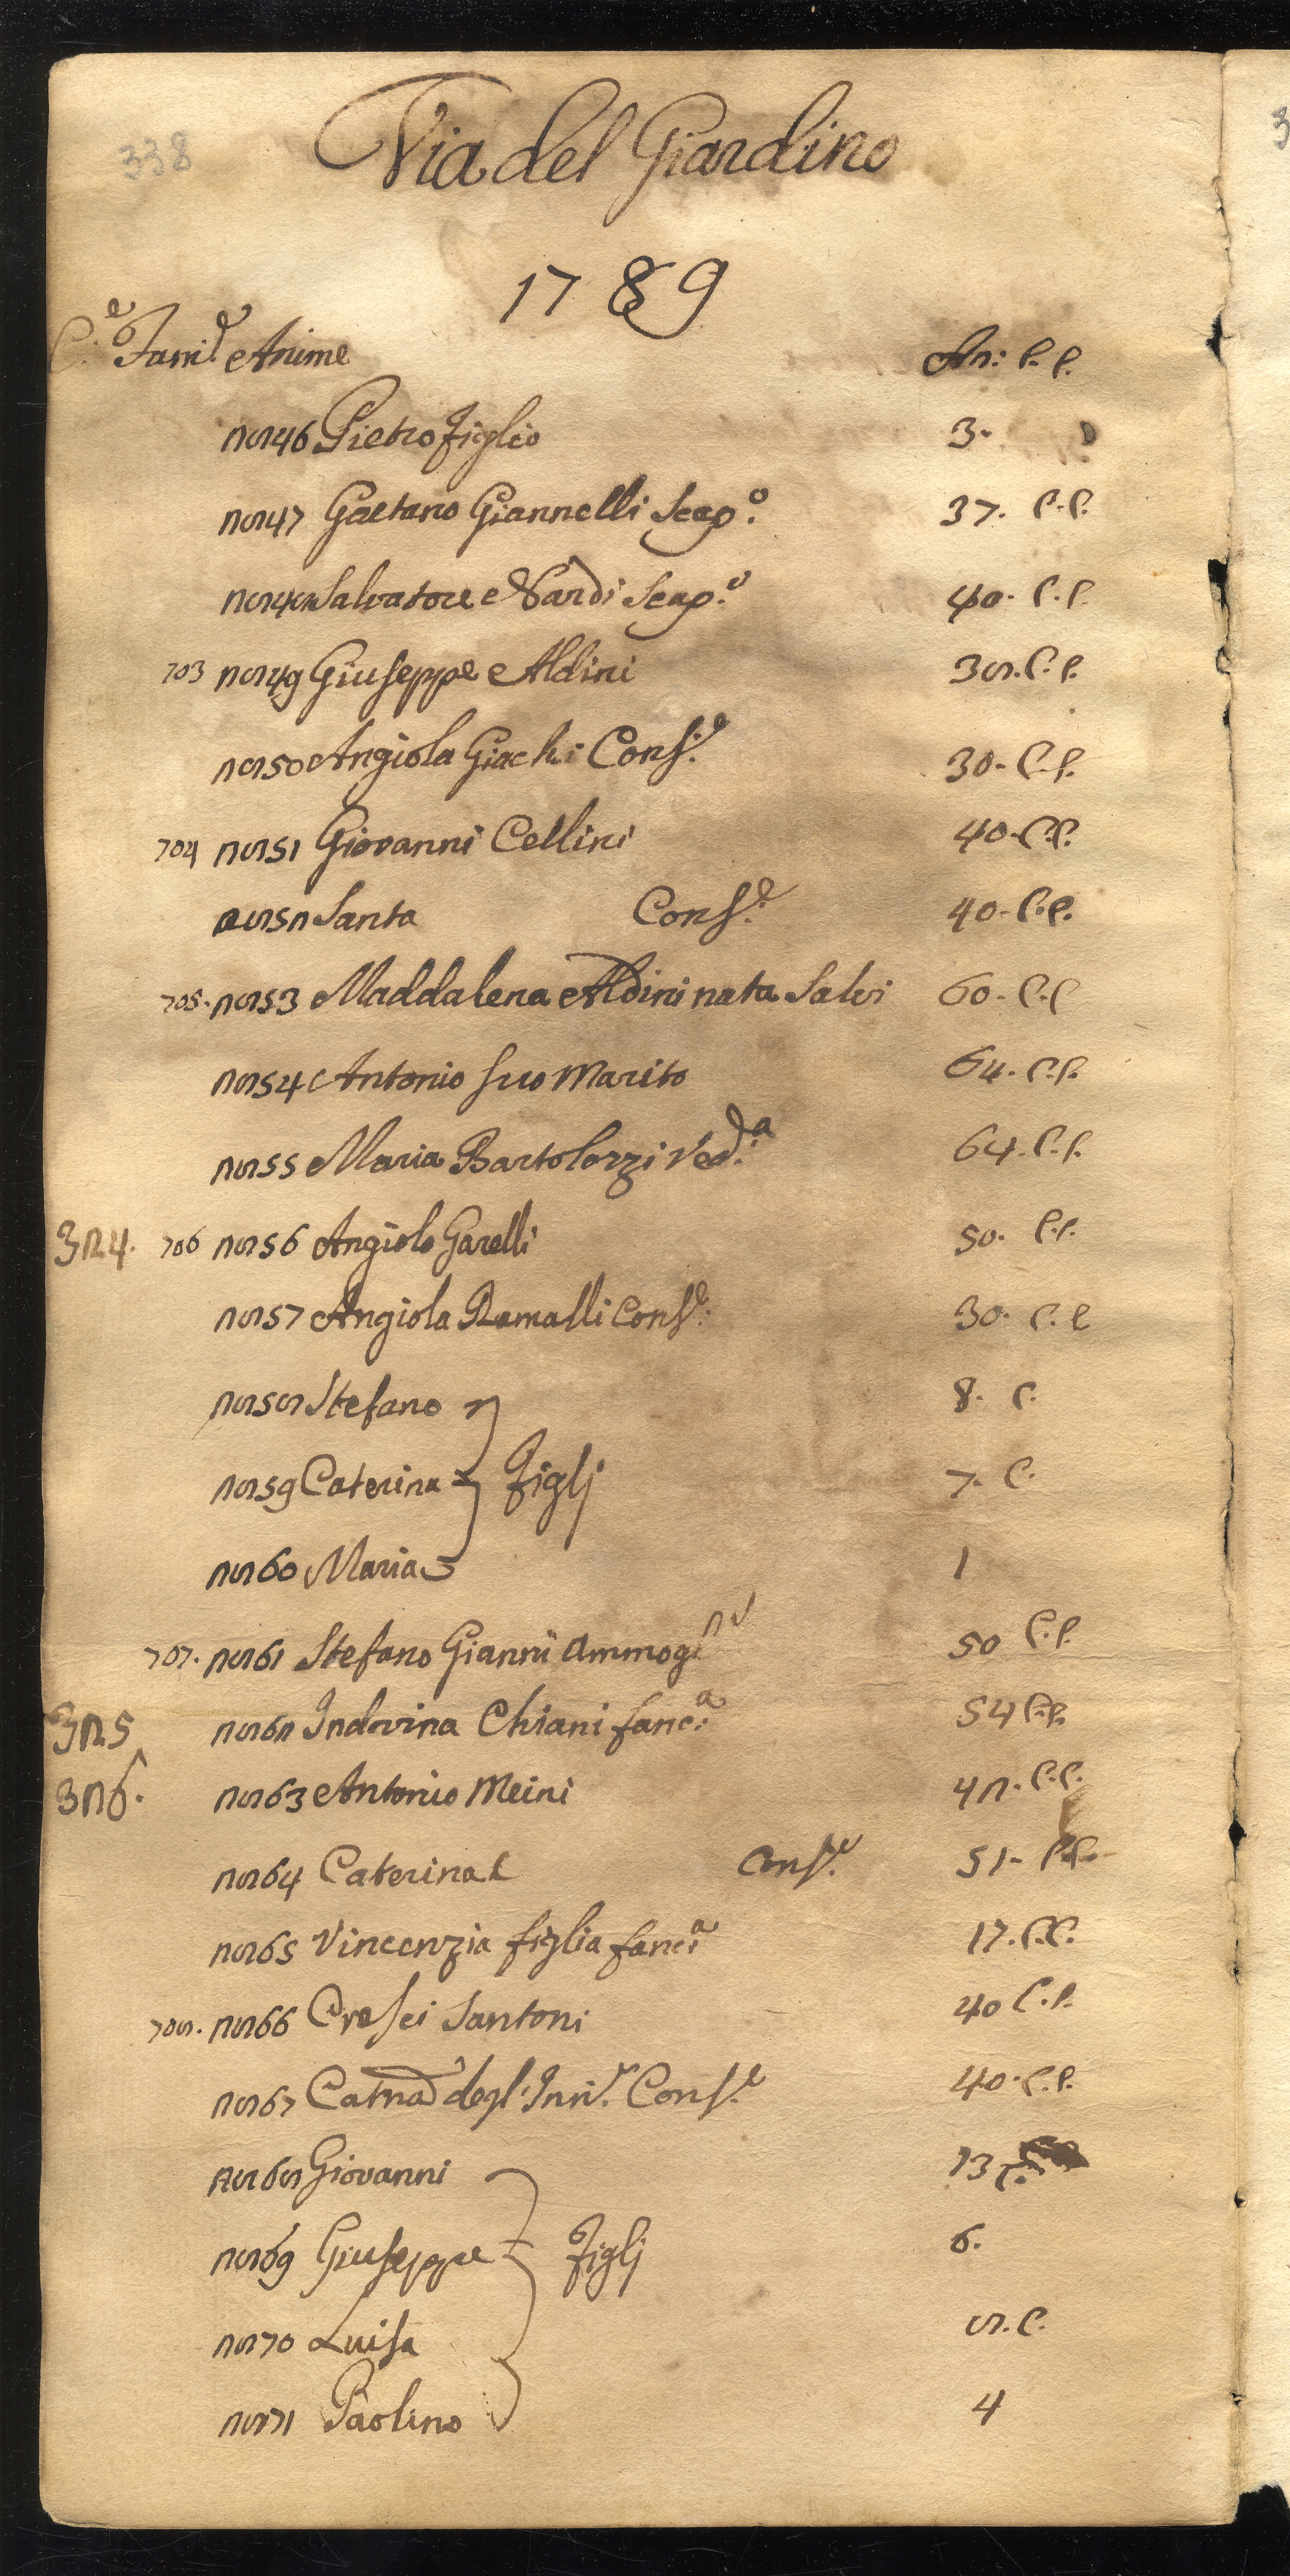 338
Via del Giardino
1789
C.e Fami.e Anime An: C. C.
2846 Pietro figlio 3.
2847 Gaetano Giannelli Scap.o 37. C.C.
2848 Salvatore Nardi Scap.o 40. C.C.
703 2849 Giuseppe Aldini 38. C.C.
2850 Angiola Giachi Cons.e 30. C.C.
704 2851 Giovanni Cellini 40. C.C.
2852 Santa Cons.e 40. C.C.
705. 2853 Maddalena Aldini nata Salvi 60. C.C
2854 Antonio suo Marito 64. C.C.
2855 Maria Bartolozzi Ved.a 64. C.C.
324. 706 2856 Angiolo Garelli 50. C.C.
2857 Angiola Ramalli Cons.e 30. C. C
2858 Stefano 8. C.
2859 Caterina Figlj 7. C.
2860 Maria 1
707. 2861 Stefano Gianni Ammog 50 C.C.
325 2862 Indovina Chiani fanc.a 54 C.C.
326. 2863 Antonio Meini 42. C.C.
2864 Caterina Cons.e 51. C.C.
2865 Vincenzia figlia fanc.a 17. C.C.
708. 2866 Cresci Santoni 40 C.C.
2867 Catna degl'Inn.i Cons.e 40. C.C.
2868 Giovanni 13 C.
2869 Giuseppe Figlj 6.
2870 Luisa 8. C.
2871 Paolino 4